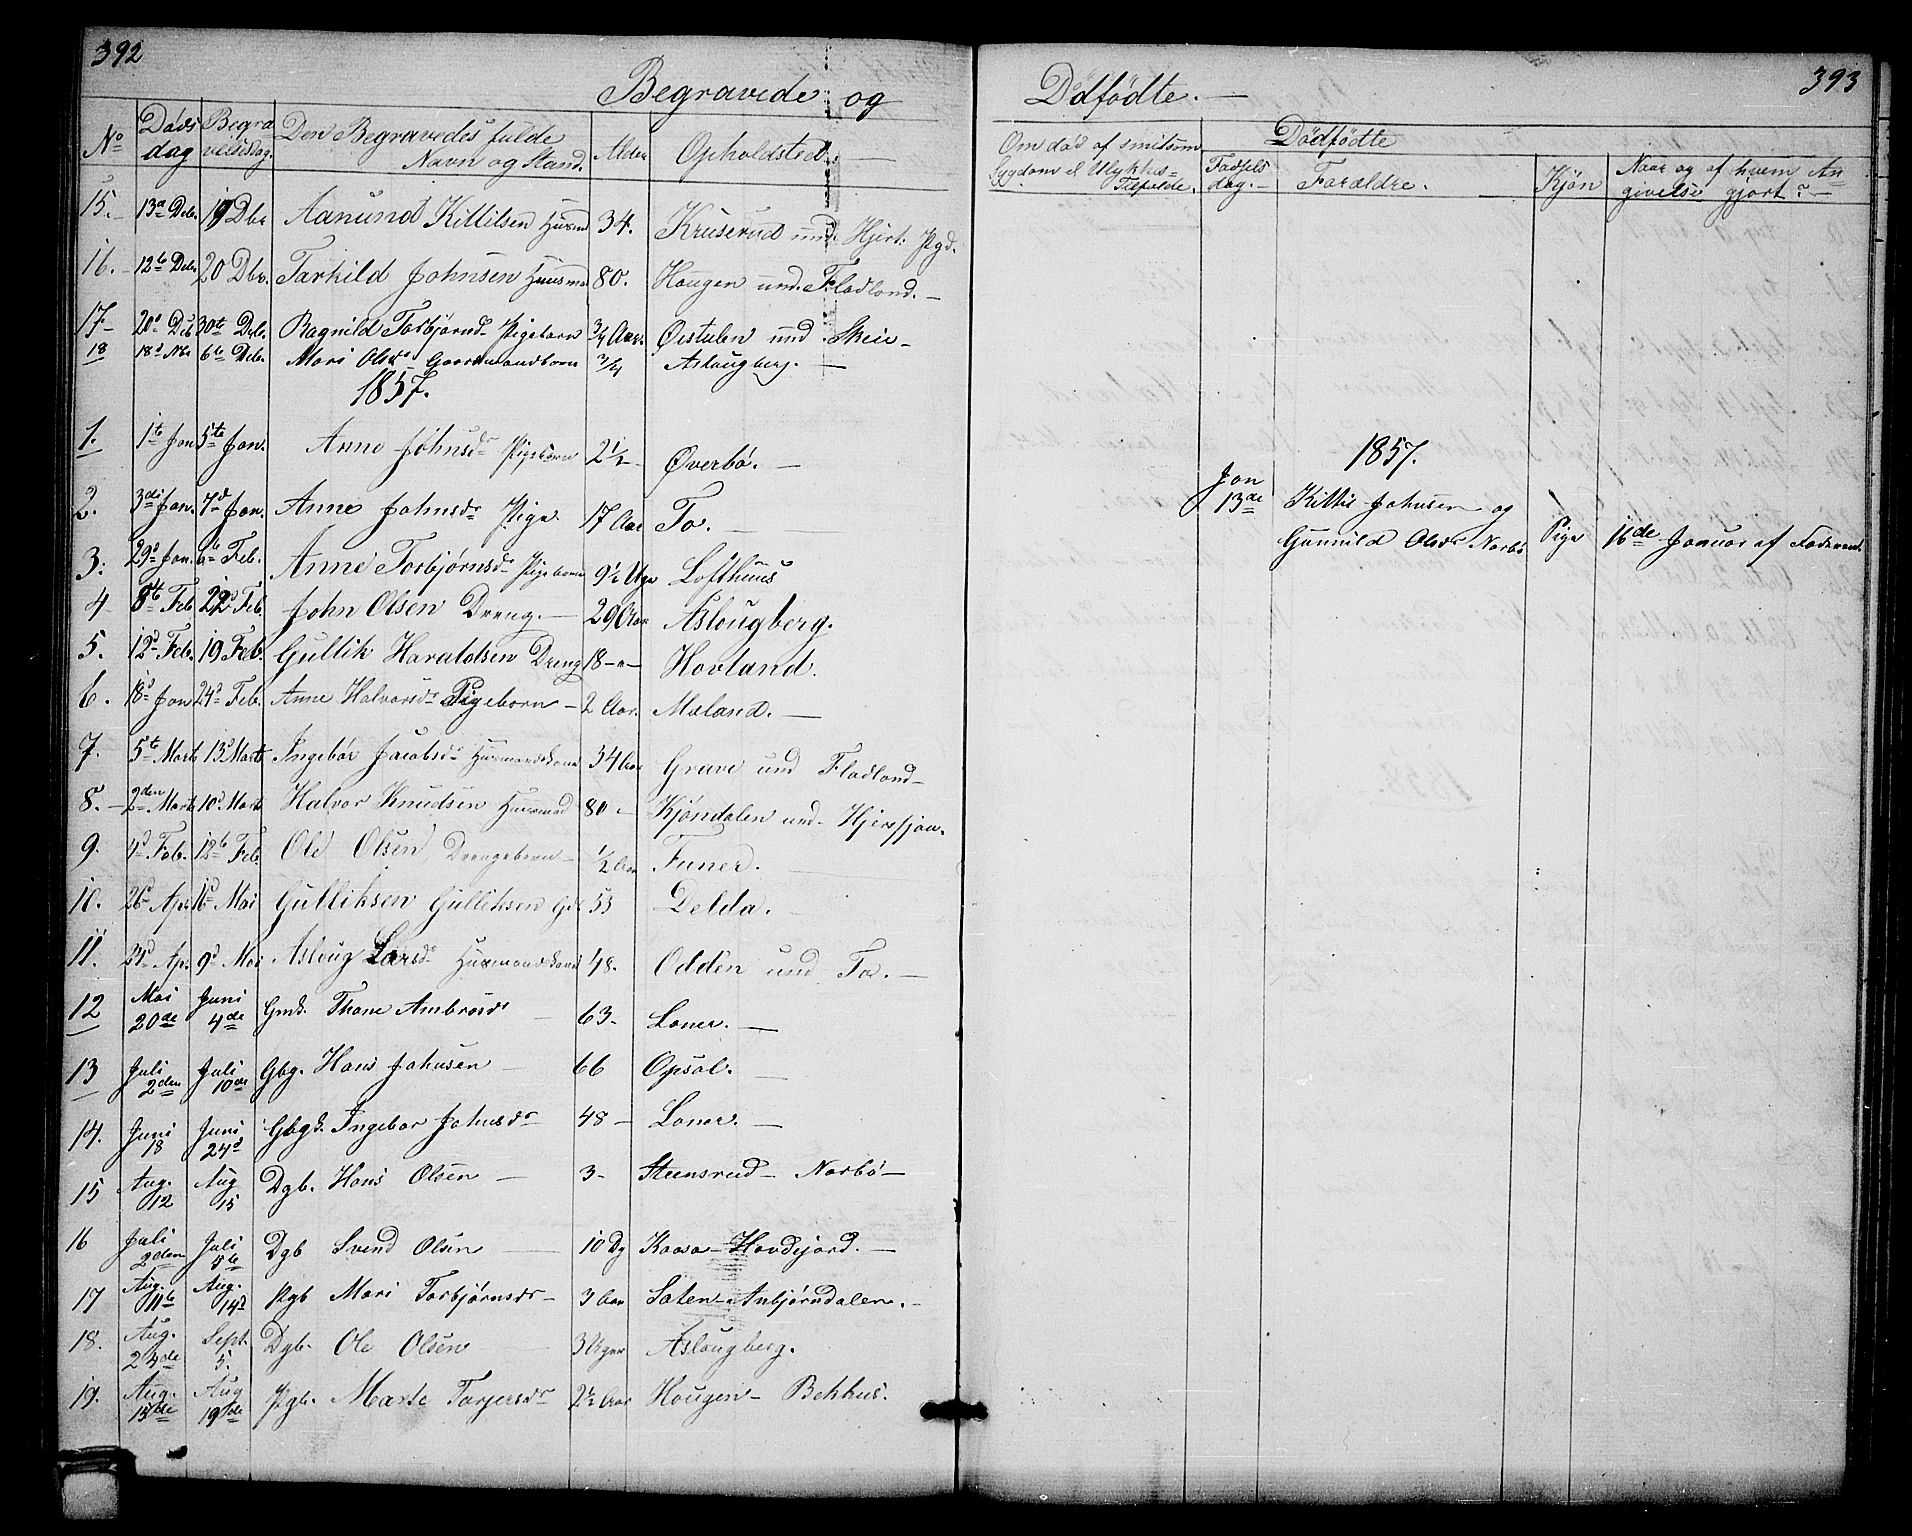 392
Begravede og
No Døds dag Begra velsesdag. Den Begravedes fulde Navn og Stand. Alder Opholdsted.
15. 13d Debr. 19 Dbr Aanund Kittilsen Husmd 34. Kruserud und. Hjert. Pgd.
16. 12te Debr. 20 Dbr. Tarkild Johnsen Huusmd 80. Haugen und. Fladland.
17 20d Deb 30te Debr. Ragnild Torbjørnsdr Pigebarn 3/4 Aar. Øistulen und Skeie
18 18d Nbr 6te Debr. Mari Olsdr Gaardmandbarn 3/4 Aslaugberg.
1857.
1. 1te Jan 5te Jan. Anne Johnsdr Pigebarn 2 1/2 Øverbø.
2. 3die Jan. 7d Jan. Anne Johnsdr Pige 17 Aar To.
3. 29d Jan. 6te Feb. Anne Torbjørnsdr Pigebarn 9 1/2 Uge Lofthuus
4 8te Feb 22d Feb. John Olsen Dreng. 29 Aar Aslougberg.
5. 12d Feb. 19 Feb. Gullik Haraldsen Dreng 18-"- Hovland.
6. 18d Jan 24d Feb. Anne Halvorsdr Pigebarn 2 Aar. Mæland.
7. 5te Marts 13d Marts Ingebor Jacobsdr Husmandskone 34 Aar Grave und Fladland
8. 2den Marts 10d Marts Halvor Knudsen Husmand 80 Kjøndalen und Hjerssjøn.
9. 4d Feb. 12te Feb. Ole Olsen, Drengebarn 1/2 Aar Funer.
10. 26d Apr. 16d Mai Gulliksen Gulliksen Gdr 53 Delda.
11. 24d Ap. 9d Mai Asloug Larsdr Husmandskone 48. Odden und To.
12 Mai 20de Juni 4de Gmk. Thone Ambrosdr 63 Loner.
13 Juli 2den Juli 10de Gbg. Hans Johnsen 66 Opsal.
14. Juni 18 Juni 24d Gbgk. Ingebor Johnsdr 48 Loner.
15 Aug. 12 Aug 15 Dgb. Hans Olsen 3 Steensrud Norbø
16 Juli 2den Juli 5te Dgb Svend Olsen 10 Dg Kaasa Hovdejord.
17 Aug. 11te Aug. 14d Pgb Mari Torbjørnsdr 3 Aar Saten Anbjørndalen.
18. Aug. 24de Sept. 5. Dgb. Ole Olsen 3 Uger Aslougberg.
19. Aug. 15de Aug 19de Pgb. Marte Torjersdr 2 1/2 Aar Hougen Bekhus.
393
Dødfødte.
Om død af smitsom Sygdom el Ulykkes-Tilfælde. Dødfødte
Fødsels dag. Forældre. Kjøn Naar og af hvem Angivelse gjort?
1857.
Jan 13de Kittil Johnsen og
Gunnild Olsdr Norbø Pige 16de Januar af Faderen.